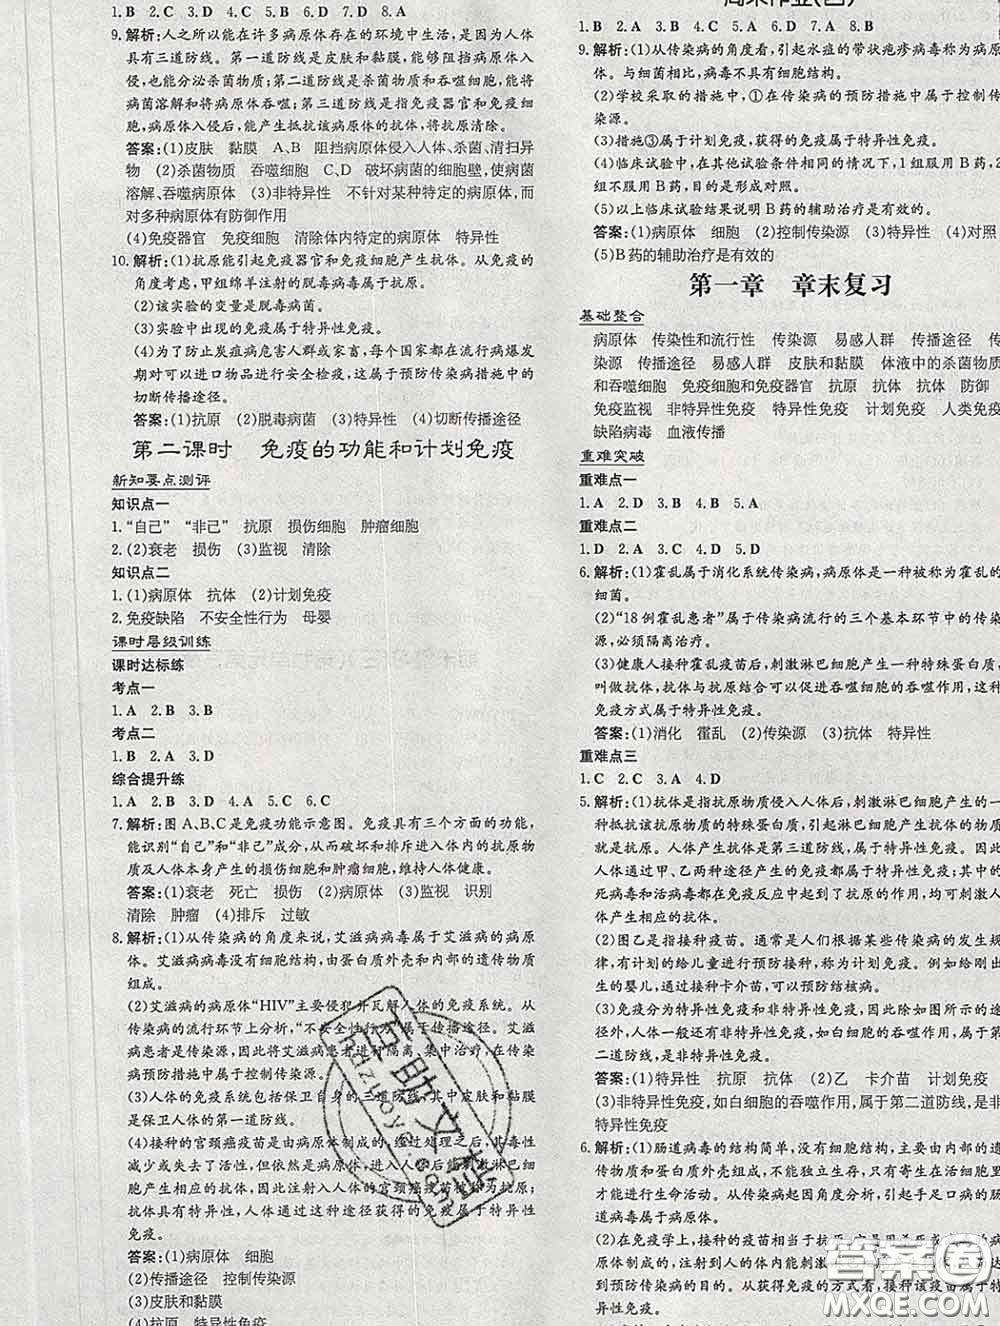 1. B 2. D 3. C 4. C 5. D 6. B 7. D 8. A
9. 解析:人之所以能在许多病原体存在的环境中生活,是因为人体
具有三道防线。第一道防线是皮肤和黏膜,能阻挡病原体的侵入,
也能分泌杀菌物质;第二道防线是杀菌物质和吞噬细胞,能将
病菌溶解和将病原体吞噬;第三道防线是指免疫器官和免疫细
胞,病原体入侵后,能产生抵抗该病原体的抗体,将抗原清除。
答案:(1)皮肤 黏膜 A、B 阻挡病原体侵入人体、杀菌、清扫异
物 (2)杀菌物质 吞噬细胞 C、D 破坏病菌的细胞壁,使病菌
溶解、吞噬病原体 (3)非特异性 不针对某种特定的病原体,而
对多种病原体有防御作用
(4)免疫器官 免疫细胞 清除体内特定的病原体 特异性
10. 解析:(1)抗原能引起免疫器官和免疫细胞产生抗体。从免疫的
角度考虑,甲组绵羊注射的脱毒病菌属于抗原。
(2)该实验的变量是脱毒病菌。
(3)实验中出现的免疫属于特异性免疫。
(4)为了防止炭疽病危害人群或家畜,每个国家都在流行病爆发
期对可以进口物品进行安全检疫,这属于预防传染病措施中的
切断传播途径。
答案:(1)抗原 (2)脱毒病菌 (3)特异性 (4)切断传播途径
第二课时 免疫的功能和计划免疫
新知要点测评
知识点一
1. “自己” “非己” 抗原 损伤细胞 肿瘤细胞
2. (2)衰老 损伤 (3)监视 清除
知识点二
1. (1)病原体 抗体 (2)计划免疫
2. 免疫缺陷 不安全性行为 母婴
课时层级训练
课时达标练
考点一
1. A 2. B 3. B
考点二
1. B 2. A 3. D
综合提升练
1. A 2. B 3. D 4. A 5. C 6. C
7. 解析:图A、B、C是免疫功能示意图。免疫具有三个方面的功能,
能识别“自己”和“非己”成分,从而破坏和排斥进入体内的抗原物
质及人体本身产生的损伤细胞和肿瘤细胞,维持人体健康。
答案:(1)衰老 死亡 损伤 (2)病原体 (3)监视 识别
清除 肿瘤 (4)排斥 过敏
8. 解析:(1)从传染病的角度来说,艾滋病病毒属于艾滋病的病原
体。艾滋病病毒没有细胞结构,由蛋白质外壳和内部的遗传物质
组成。
(2)艾滋病的病原体“HIV”主要侵犯并瓦解人体的免疫系统。从
传染病的流行环节上分析,“不安全性行为”属于传播途径。艾滋
病患者是传染源,因此将艾滋病患者进行隔离、集中治疗,在传染
病预防措施中属于控制传染源。
(3)人体的免疫系统包括保卫自身的三道防线,其中皮肤和黏膜
是保卫人体的第一道防线。
(4)接种的宫颈癌疫苗是由病原体制成的,经过处理之后,其毒性
减少或失去了活性,但依然是病原体,进入人体后能刺激淋巴细
胞产生抗体,因此注射入人体的宫颈癌疫苗被称为抗原;
抗体具有特异性,人体通过这种途径获得的免疫属于特异性免
疫。
答案:(1)病原体 细胞
(2)传播途径 控制传染源
(3)皮肤和黏膜
(4)抗原 特异性免疫
周末作业(四)
1. B 2. A 3. C 4. D 5. D 6. B 7. A 8. B
9. 解析:(1)从传染病的角度看,引起水痘的带状疱疹病毒称为病原
体。与细菌相比,病毒不具有细胞结构。
(2)学校采取的措施中,①在传染病的预防措施中属于控制传
染源。
(3)措施③属于计划免疫,获得的免疫属于特异性免疫。
(4)临床试验中,在其他试验条件相同的情况下,1组服用B药,2
组不服用B药,目的是形成对照。
(5)以上临床试验结果说明B药的辅助治疗是有效的。
答案:(1)病原体 细胞 (2)控制传染源 (3)特异性 (4)对照
(5)B药的辅助治疗是有效的
第一章 章末复习
基础整合
病原体 传染性和流行性 传染源 易感人群 传播途径 传
染源 传播途径 易感人群 皮肤和黏膜 体液中的杀菌物质
和吞噬细胞 免疫细胞和免疫器官 抗原 抗体 抗体 防御
免疫监视 非特异性免疫 特异性免疫 计划免疫 人类免疫
缺陷病毒 血液传播
重难突破
重难点一
1. A 2. D 3. B 4. D 5. A
重难点二
1. D 2. A 3. C 4. D 5. D
6. 解析:(1)霍乱属于消化系统传染病,病原体是一种被称为霍乱的
细菌。
(2)“18例霍乱患者”属于传染病流行的三个基本环节中的传染
源,必须隔离治疗。
(3)健康人接种霍乱疫苗后,刺激淋巴细胞产生一种特殊蛋白质,
叫做抗体,抗体与抗原结合可以促进吞噬细胞的吞噬作用,这种
免疫方式属于特异性免疫。
答案:(1)消化 霍乱 (2)传染源 (3)抗体 特异性
重难点三
1. C 2. C 3. A 4. D
5. 解析:(1)抗体是指抗原物质侵入人体后,刺激淋巴细胞产生的一
种抵抗该抗原物质的特殊蛋白质,引起淋巴细胞产生抗体的物质
就是抗原。人体产生抗体是第三道防线,是特异性免疫。因此,
人体通过甲、乙两种途径产生的免疫都属于特异性免疫;其中的
死病毒和活病毒都在免疫反应中起到了抗原的作用,均可刺激人
体产生相应的抗体。
(2)图乙是指接种疫苗。通常是人们根据某些传染病的发生规
律,有计划的给儿童进行预防接种,称为计划免疫。例如给刚出
生的婴儿,通过接种卡介苗,可以预防结核病。
(3)免疫分为特异性免疫和非特异性免疫,因此除如图所示的途
径外,人体一般还有非特异性免疫,如白细胞的吞噬作用,属于第
二道防线,是非特异性免疫。
答案:(1)特异性 抗原 抗体 (2)乙 卡介苗 计划免疫
(3)非特异性免疫,如白细胞的吞噬作用,属于第二道防线,是非
特异性免疫
6. 解析:(1)肠道病毒的结构简单,没有细胞结构,主要由内部的遗
传物质和蛋白质外壳组成,不能独立生存,只有寄生在活细胞内
才能进行生命活动。从传染病的起因角度分析,引起手足口病的肠
道病毒属于病原体。
(2)在免疫学上,接种的疫苗通常是用杀死或减毒的病
原体制成的,注射到人体的
到预防传染病的目的。从获得免疫的方式看,接种该疫苗属于特
异性免疫。
百助文档
答案圈
MXQE.COM